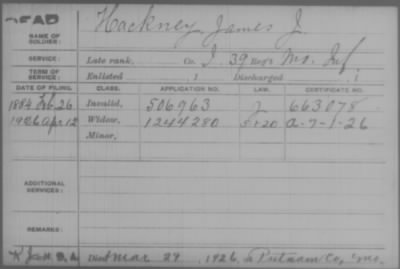 DEAD
NAME OF SOLDIER: Hackney James J.
SERVICE: Late rank, Co. I, 39 Reg't Mo. Inf
TERM OF SERVICE: Enlisted , 1 Discharged , 1
DATE OF FILING. CLASS. APPLICATION NO. LAW. CERTIFICATE NO.
1884 Feb. 26 Invalid, 506963 663078
1926 Apr 12 Widow, 1244280 5-1-20 a-7-1-26
Minor,
ADDITIONAL SERVICES:
REMARKS:
Died Mar 29, 1926, Putnam Co, Mo.